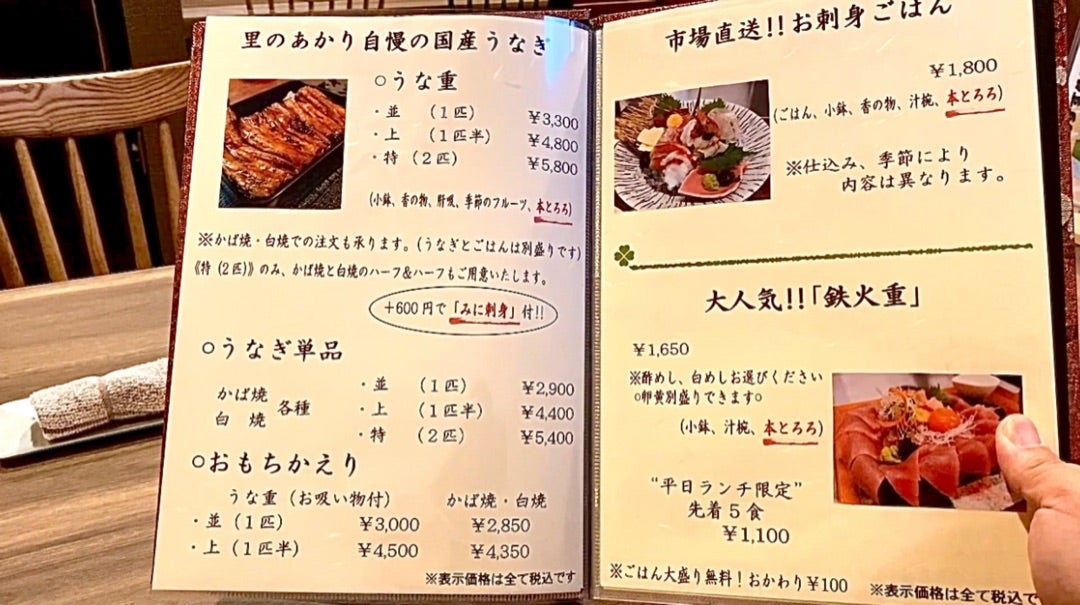 里のあかり自慢の国産うなぎ
○うな重
・並 (1匹) ¥3,300
・上 (1匹半) ¥4,800
・特 (2匹) ¥5,800
(小鉢、香の物、肝吸、季節のフルーツ、本とろろ)
※かば焼・白焼での注文も承ります。(うなぎとごはんは別盛りです)
《特(2匹)》のみ、かば焼と白焼のハーフ&ハーフもご用意いたします。
+600円で「みに刺身」付!!
○うなぎ単品
かば焼 白焼 各種
・並 (1匹) ¥2,900
・上 (1匹半) ¥4,400
・特 (2匹) ¥5,400
○おもちかえり
うな重(お吸い物付) かば焼・白焼
・並(1匹) ¥3,000 ¥2,850
・上(1匹半) ¥4,500 ¥4,350
※表示価格は全て税込です
市場直送!!お刺身ごはん
¥1,800
(ごはん、小鉢、香の物、汁椀、本とろろ)
※仕込み、季節により
内容は異なります。
大人気!!「鉄火重」
¥1,650
※酢めし、白めしお選びください
○卵黄別盛りできます○
(小鉢、汁椀、本とろろ)
“平日ランチ限定”
先着5食
¥1,100
※ごはん大盛り無料!おかわり¥100
※表示価格は全て税込で